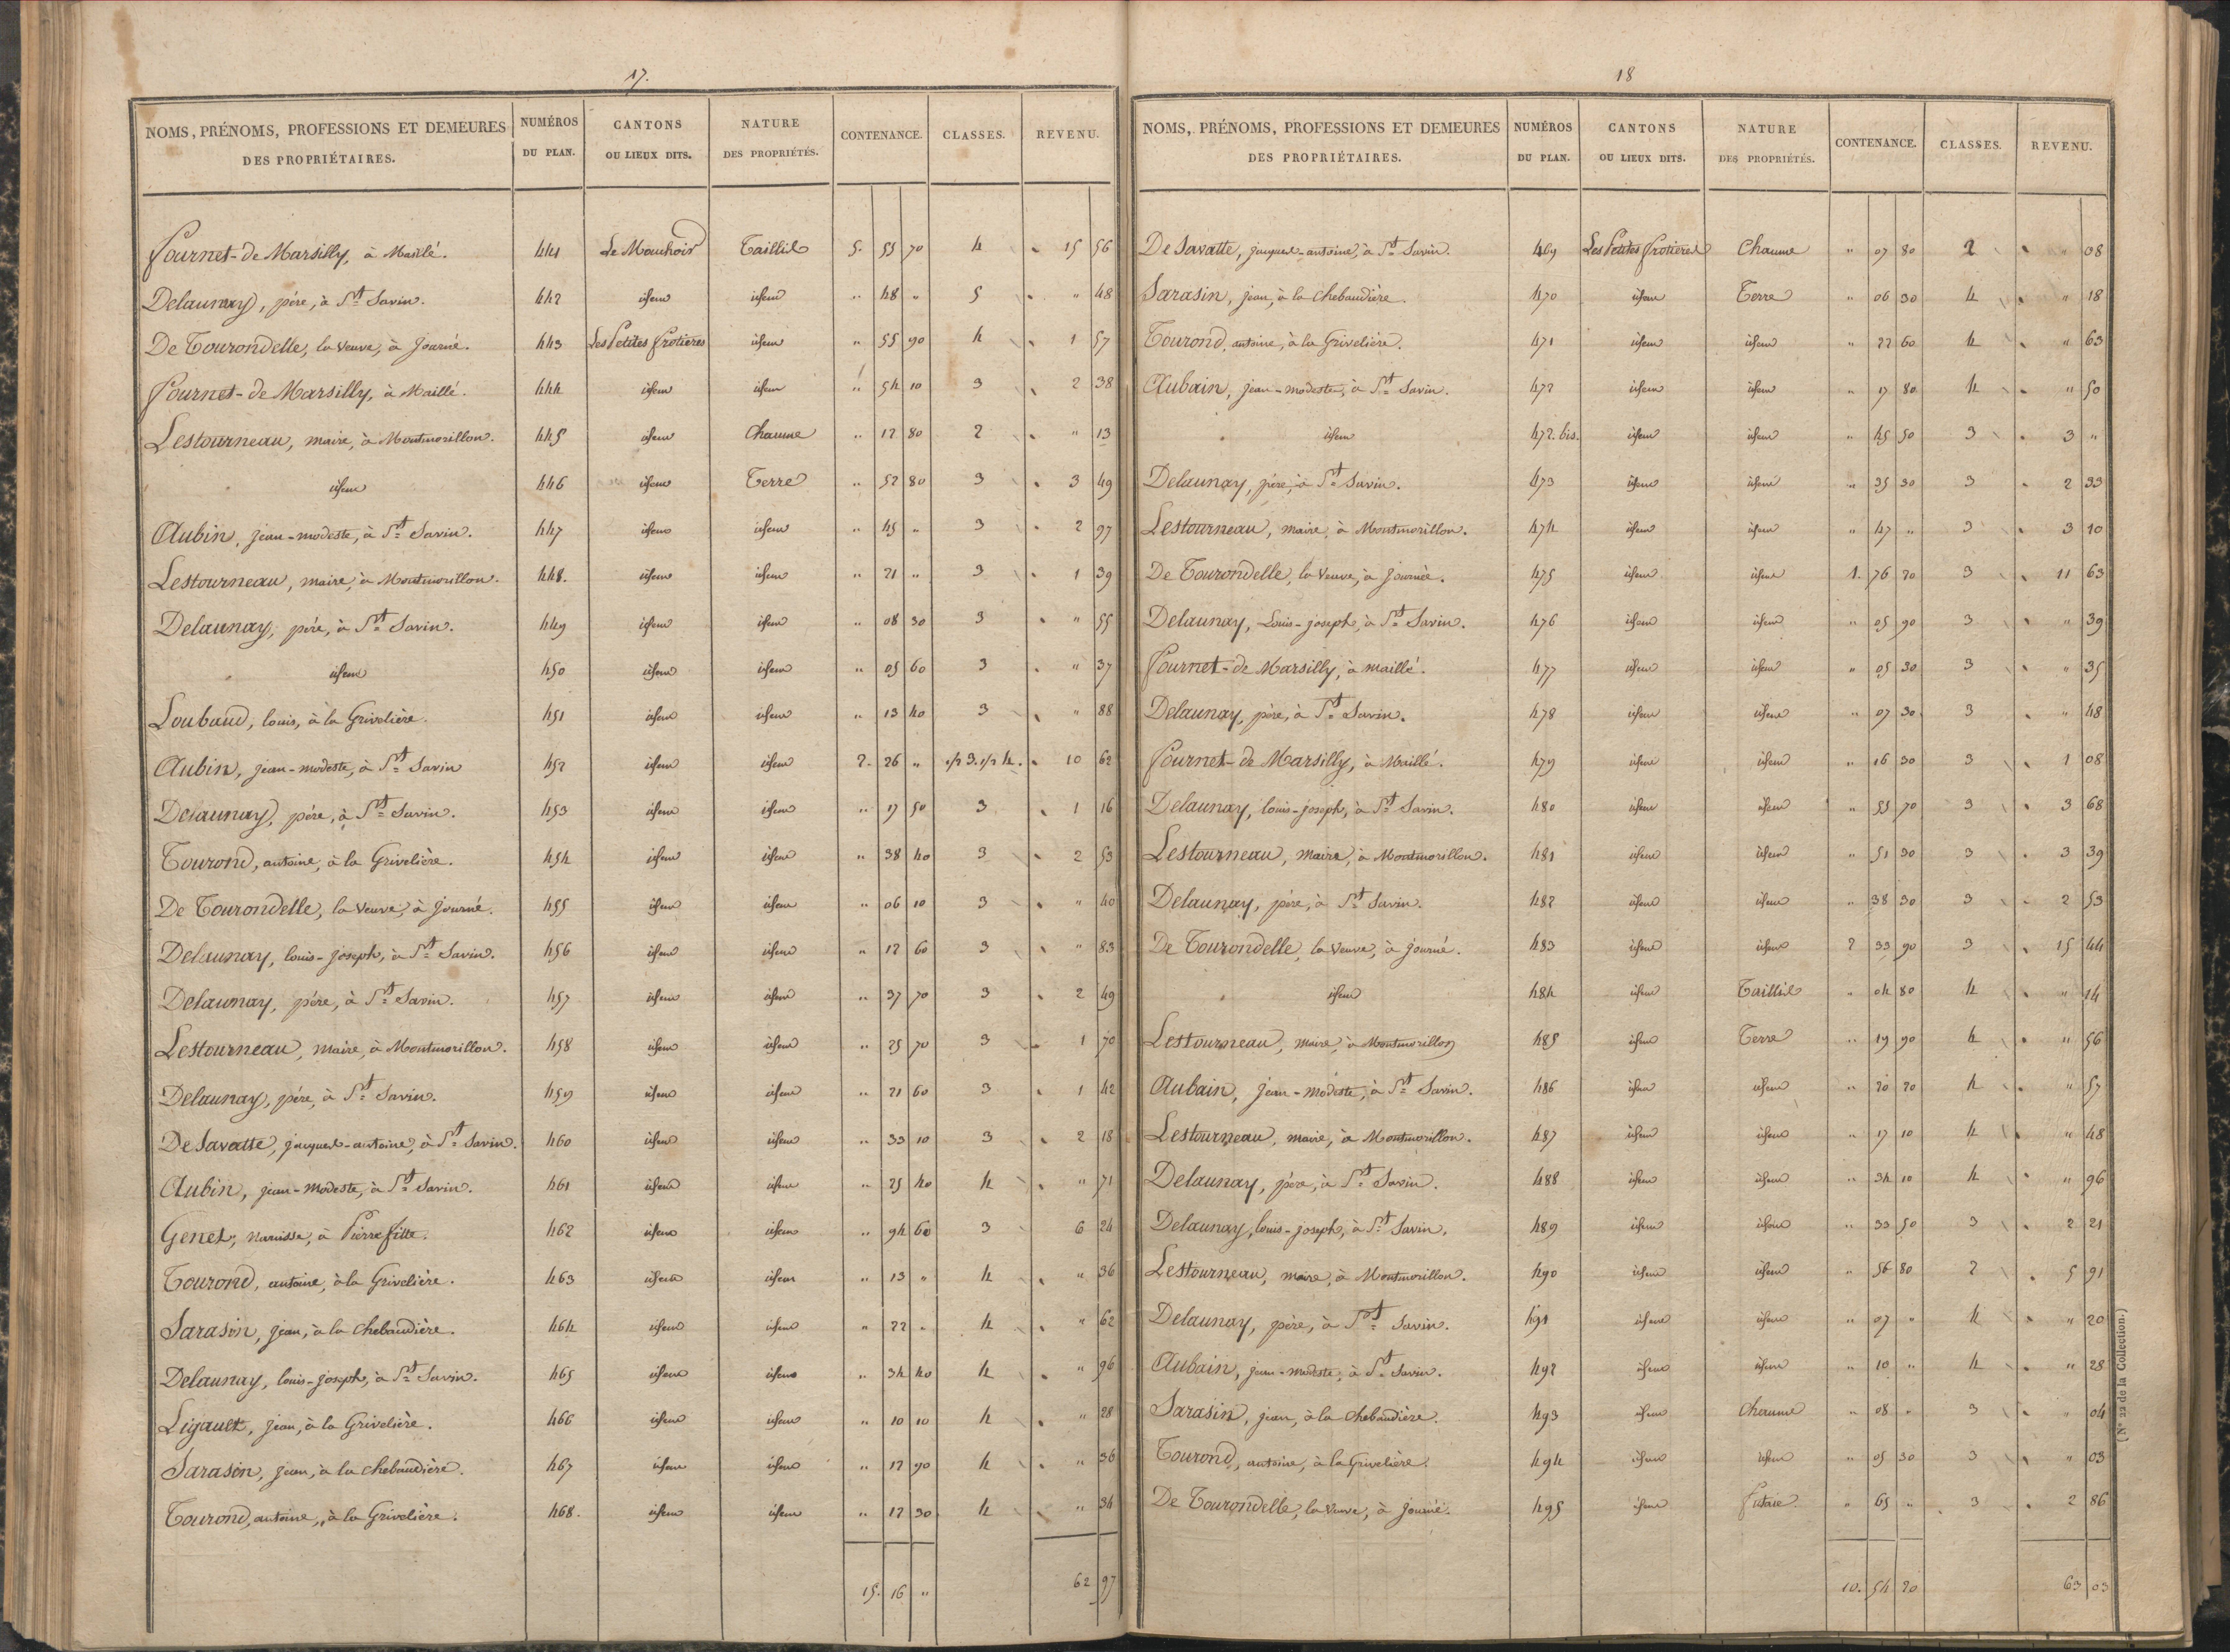 17.
NOMS, PRÉNOMS, PROFESSIONS ET DEMEURES DES PROPRIÉTAIRES. NUMÉROS DU PLAN. CANTONS OU LIEUX DITS. NATURE DES PROPRIÉTÉS. CONTENANCE. CLASSES. REVENU.
Fournet-de Marsilly, à Maillé. 441 Le Mouchoir Taillis 5. 55 70 4 15 56
Delaunay, père, à St. Savin. 442 idem idem " 48 " 5 " 48
De Tourondelle, la veuve, à Journé. 443 Les Petites frotieres idem " 55 90 4 1 57
Fournet-de Marsilly, à Maillé. 444 idem idem " 54 10 3 2 38
Lestourneau, maire, à Montmorillon. 445 idem Chaume " 12 80 2 " 13
idem 446 idem Terre " 52 80 3 3 49
Aubin, jean-modeste, à St. Savin. 447 idem idem " 45 " 3 2 97
Lestourneau, maire, à Montmorillon. 448. idem idem " 21 " 3 1 39
Delaunay, père, à St. Savin. 449 idem idem " 08 30 3 " 55
idem 450 idem idem " 05 60 3 " 37
Loubaud, louis, à la Grivelière. 451 idem idem " 13 40 3 " 88
Aubin, jean-modeste, à St. Savin 452 idem idem 2. 26 " 1/2 3. 1/2 4. 10 62
Delaunay, père, à St. Savin. 453 idem idem " 17 50 3 1 16
Tourond, antoine, à la Grivelière. 454 idem idem " 38 40 3 2 53
De Tourondelle, la veuve, à Journé. 455 idem idem " 06 10 3 " 40
Delaunay, louis-joseph, à St. Savin. 456 idem idem " 12 60 3 " 83
Delaunay, père, à St. Savin. 457 idem idem " 37 70 3 2 49
Lestourneau, maire, à Montmorillon. 458 idem idem " 25 70 3 1 70
Delaunay, père, à St. Savin. 459 idem idem " 21 60 3 1 42
De Savatte, jacques-antoine, à St. Savin. 460 idem idem " 33 10 3 2 18
Aubin, jean-modeste, à St. Savin. 461 idem idem " 25 40 4 " 71
Genet, narcisse, à Pierrefitte. 462 idem idem " 94 60 3 6 24
Tourond, antoine, à la Grivelière. 463 idem idem " 13 " 4 " 36
Sarasin, jean, à la chebaudière. 464 idem idem " 22 " 4 " 62
Delaunay, louis-joseph, à St. Savin. 465 idem idem " 34 40 4 " 96
Ligault, jean, à la Grivelière. 466 idem idem " 10 10 4 " 28
Sarasin, jean, à la chebaudière. 467 idem idem " 12 90 4 " 36
Tourond, antoine, à la Grivelière. 468. idem idem " 12 30 4 " 34
15. 16 " 62 97
18
NOMS, PRÉNOMS, PROFESSIONS ET DEMEURES DES PROPRIÉTAIRES. NUMÉROS DU PLAN. CANTONS OU LIEUX DITS. NATURE DES PROPRIÉTÉS. CONTENANCE. CLASSES. REVENU.
De Savatte, jacques-antoine, à St. Savin. 469 Les Petites frotieres Chaume " 07 80 2 " 08
Sarasin, jean, à la chebaudière. 470 idem Terre " 06 30 4 " 18
Tourond, antoine, à la Grivelière. 471 idem idem " 22 60 4 " 63
Aubain, jean-modeste, à St. Savin. 472 idem idem " 17 80 4 " 50
idem 472. bis. idem idem " 45 50 3 3 "
Delaunay, père, à St. Savin. 473 idem idem " 35 30 3 2 33
Lestourneau, maire, à Montmorillon. 474 idem idem " 47 " 3 3 10
De Tourondelle, la veuve, à Journée. 475 idem idem 1. 76 20 3 11 63
Delaunay, Louis-joseph, à St. Savin. 476 idem idem " 05 90 3 " 39
Fournet-de Marsilly, à maillé. 477 idem idem " 05 30 3 " 35
Delaunay, père, à St. Savin. 478 idem idem " 07 30 3 " 48
Fournet-de Marsilly, à Maillé. 479 idem idem " 16 30 3 1 08
Delaunay, louis-joseph, à St. Savin. 480 idem idem " 55 70 3 3 68
Lestourneau, maire, à Montmorillon. 481 idem idem " 51 30 3 3 39
Delaunay, père, à St. Savin. 482 idem idem " 38 30 3 2 53
De Tourondelle, la veuve, à Journé. 483 idem idem 2 33 90 3 15 44
idem 484 idem Taillis " 04 80 4 " 14
Lestourneau, maire, à Montmorillon 485 idem Terre " 19 90 4 " 56
Aubain, jean-modeste, à St. Savin. 486 idem idem " 20 20 4 " 57
Lestourneau, maire, à Montmorillon. 487 idem idem " 17 10 4 " 48
Delaunay, père, à St. Savin. 488 idem idem " 34 10 4 " 96
Delaunay, louis-joseph, à St. Savin. 489 idem idem " 33 50 3 2 21
Lestourneau, maire, à Montmorillon. 490 idem idem " 56 80 2 5 91
Delaunay, père, à St. Savin. 491 idem idem " 07 " 4 " 20
Aubain, jean-modeste, à St. Savin. 492 idem idem " 10 " 4 " 28
Sarasin, jean, à la chebaudière. 493 idem Chaume " 08 " 3 " 04
Tourond, antoine, à la Grivelière. 494 idem idem " 05 30 3 " 03
De Tourondelle, la veuve, à Journé. 495 idem Futaie. " 65 " 3 2 86
10. 54 20 63 03
(N° 22 de la Collection.)